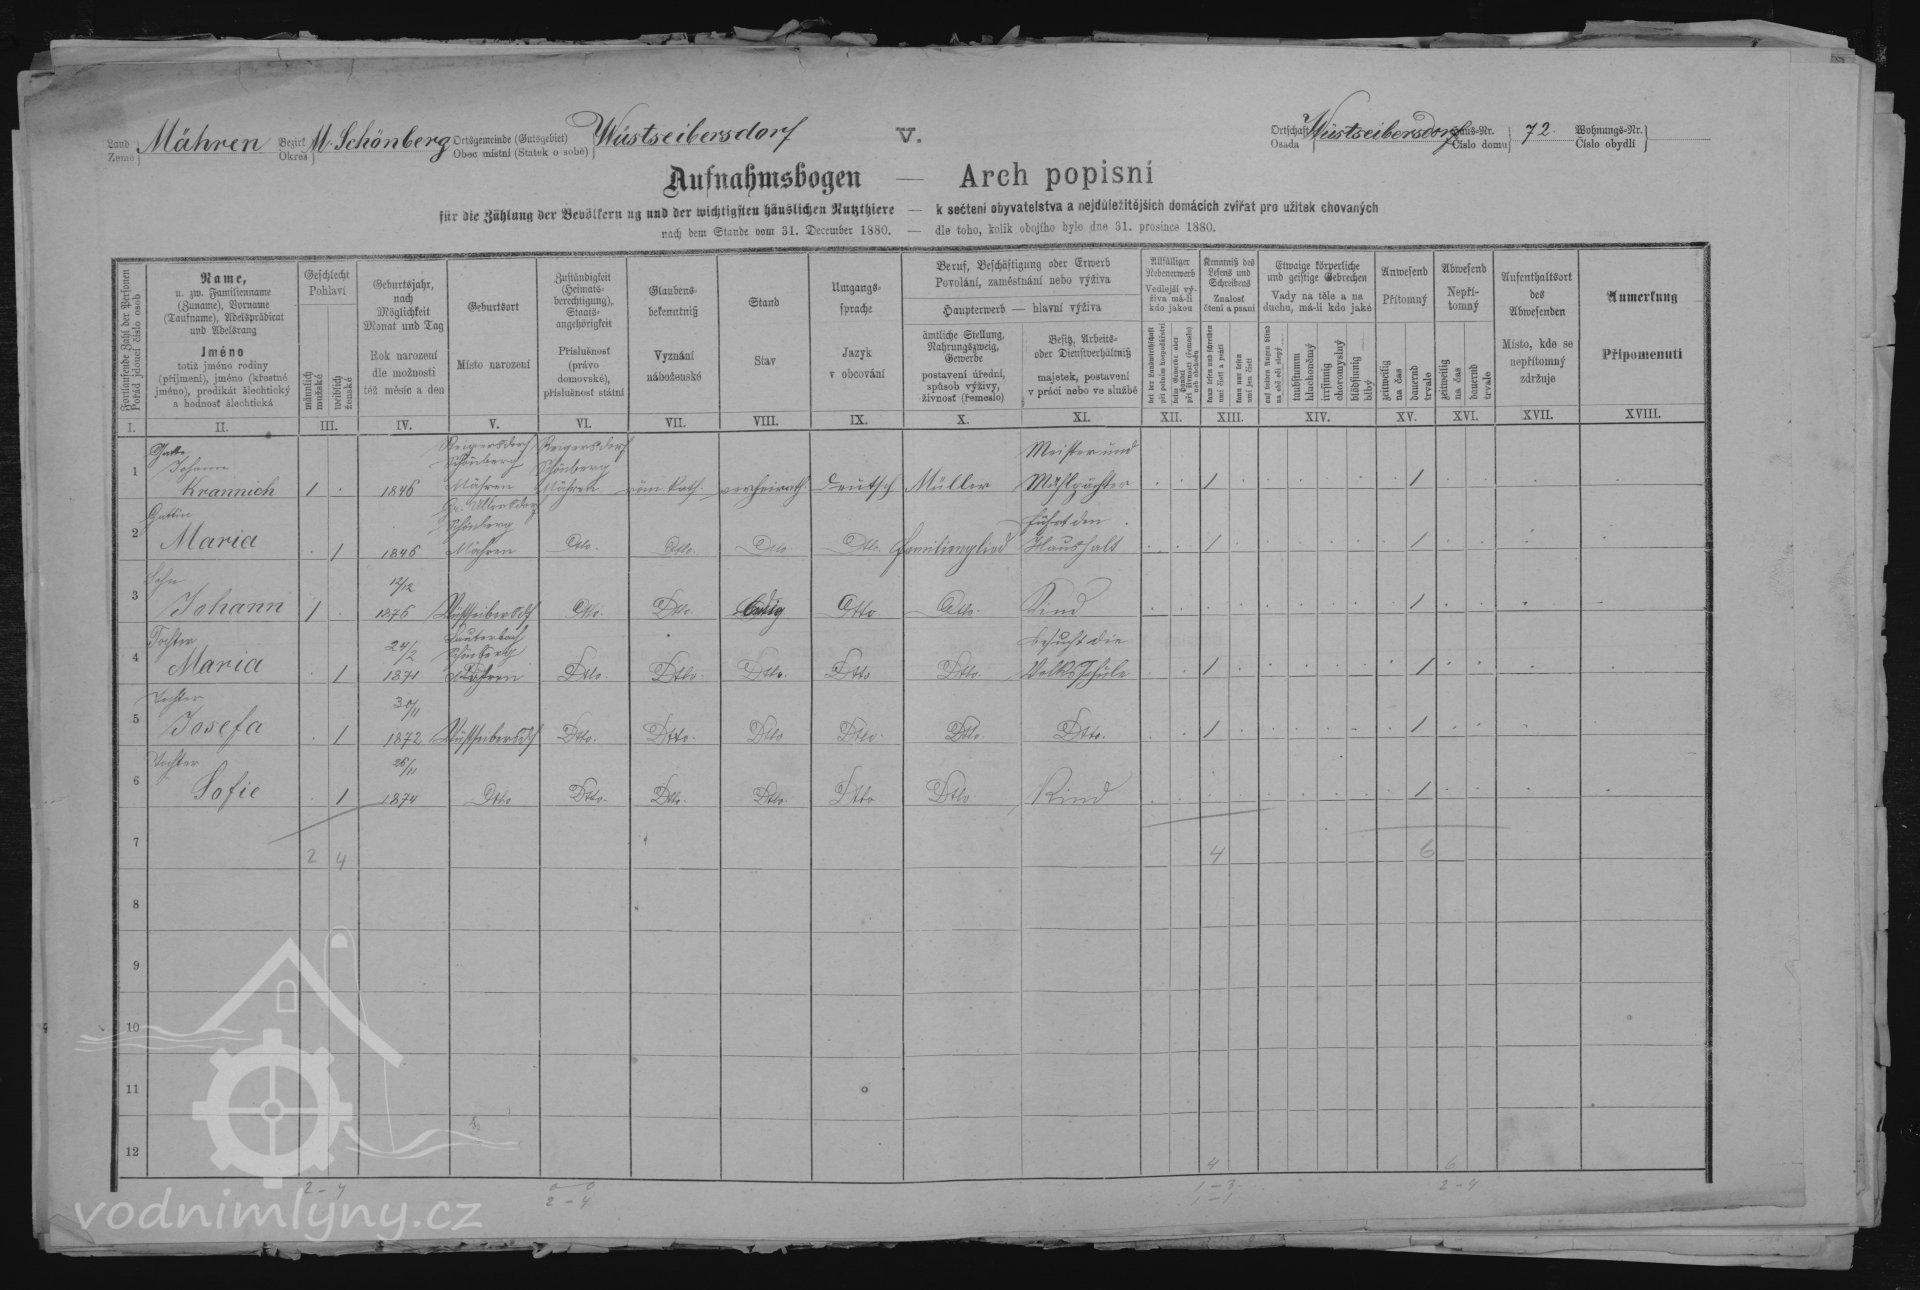 Land Země } Mähren Bezirk Okres } M. Schönberg Ortsgemeinde (Gutsgebiet) Obec místní (Statek o sobě) } Wüstseibersdorf V. Ortschaft Osada } Wüstseibersdorf Haus-Nr. Číslo domu } 72. Wohnungs-Nr. Číslo obydlí }
Aufnahmsbogen — Arch popisní
für die Zählung der Bevölkerung und der wichtigsten häuslichen Nutzthiere — k sečtení obyvatelstva a nejdůležitějších domácích zvířat pro užitek chovaných
nach dem Stande vom 31. December 1880. — dle toho, kolik obojího bylo dne 31. prosince 1880.
Fortlaufende Zahl der Personen
Pořád jdoucí číslo osob
Name,
u. zw. Familienname
(Zuname), Vorname
(Taufname), Adelsprädicat
und Adelsrang
Jméno
totiž jméno rodiny
(příjmení), jméno (křestné
jméno), predikát šlechtický
a hodnost šlechtická
Geschlecht
Pohlaví
männlich
mužské
weiblich
ženské
Geburtsjahr,
nach
Möglichkeit
Monat und Tag
Rok narození
dle možnosti
též měsíc a den
Geburtsort
Místo narození
Zuständigkeit
(Heimats-
berechtigung),
Staats-
angehörigkeit
Příslušnosť
(právo
domovské),
příslušnost státní
Glaubens-
bekenntniß
Vyznání
náboženské
Stand
Stav
Umgangs-
sprache
Jazyk
v obcování
Beruf, Beschäftigung oder Erwerb
Povolání, zaměstnání nebo výživa
Haupterwerb — hlavní výživa
ämtliche Stellung,
Nahrungszweig,
Gewerbe
postavení úřední,
spůsob výživy,
živnosť (řemeslo)
Besitz, Arbeits-
oder Dienstverhältniß
majetek, postavení
v práci nebo ve službě
Allfälliger
Nebenerwerb
Vedlejší vý-
živa má-li
kdo jakou
bei der Landwirthschaft
při polním hospodářství
Kenntniß des
Lesens und
Schreibens
Znalost
čtení a psaní
kann lesen und schreiben
umí čísti a psáti
kann nur lesen
umí jen čísti
Etwaige körperliche
und geistige Gebrechen
Vady na těle a na
duchu, má-li kdo jaké
auf beiden Augen blind
na obě oči slepý
taubstumm
hluchoněmý
irrsinnig
choromyslný
blödsinnig
blbý
Anwesend
Přítomný
zeitweilig
na čas
dauernd
trvale
Abwesend
Nepří-
tomný
zeitweilig
na čas
dauernd
trvale
Aufenthaltsort
des
Abwesenden
Místo, kde se
nepřítomný
zdržuje
Anmerkung
Připomenutí
I. II. III. IV. V. VI. VII. VIII. IX. X. XI. XII. XIII. XIV. XV. XVI. XVII. XVIII.
Gatte Reigersdorf Reigersdorf Meister und
Johann Schönberg Schönberg
1 Krannich 1 . 1846 Mähren Mähren röm. kath. verheirath. Deutsch Müller Mühlpächter . . 1 . . . . . . 1 . . . .
Gattin Gr. Ullersdorf führt den
Schönberg
2 Maria . 1 1846 Mähren Dtto. Dtto. Dtto Dtto. Familienglied Haushalt . . 1 . . . . . . 1 . . . .
Sohn 12/12
3 Johann 1 . 1876 Wüstseibersdf Dtto. Dtto. ledig Dtto Dtto. Kind . . . . . . . . . 1 . . . .
Tochter 24/2 Lauterbach besucht die
Schönberg
4 Maria . 1 1871 Mähren Dtto. Dtto. Dtto. Dtto Dtto. Volksschule . . 1 . . . . . . 1 . . . .
Tochter 30/11
5 Josefa . 1 1872 Wüstseibersdf Dtto. Dtto. Dtto Dtto. Dtto. Dtto. . . 1 . . . . . . 1 . . . .
Tochter 26/11
6 Sofie . 1 1874 Dtto Dtto. Dtto. Dtto. Dtto Dtto. Kind . . . . . . . . . 1 . . . .
7 2 4 4 6
8
9
10
11
12 4 6
2 - 4 0 0 1 - 3 2 - 4
2 - 4 1 - 1
vodnimlyny.cz